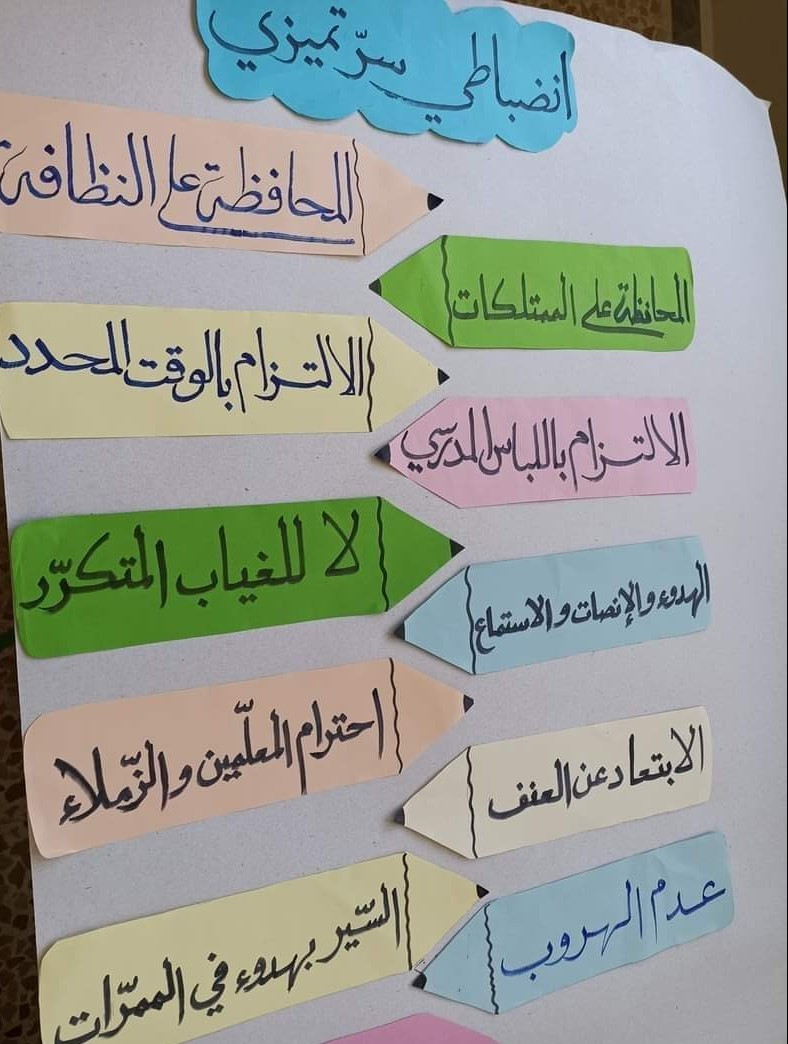 انضباطي سرّ تميزي
المحافظة على النظافة
المحافظة على الممتلكات
الالتزام بالوقت المحدد
الالتزام باللباس المدرسي
لا للغياب المتكرّر
الهدوء والإنصات والاستماع
احترام المعلّمين والزّملاء
الابتعاد عن العنف
السّير بهدوء في الممرّات
عدم الهروب